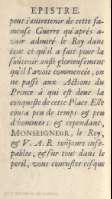 EPISTRE.
pour s'entretenir de cette fa-
meuse Guerre qu'aprés a-
voir admiré le Roy dans
tout ce qu'il a fait pour la
soûtenir aussi glorieusement
qu'il l'avoit commencée, on
ne passe aux Actions du
Prince à qui est deuë la
conqueste de cette Place. Elle
cousta peu de temps & peu
d'hommes; & cependant,
MONSEIGNEUR, le Roy,
& V. A. R. toûjours insé-
parables, & sur tout dans le
peril, vous courustes risque